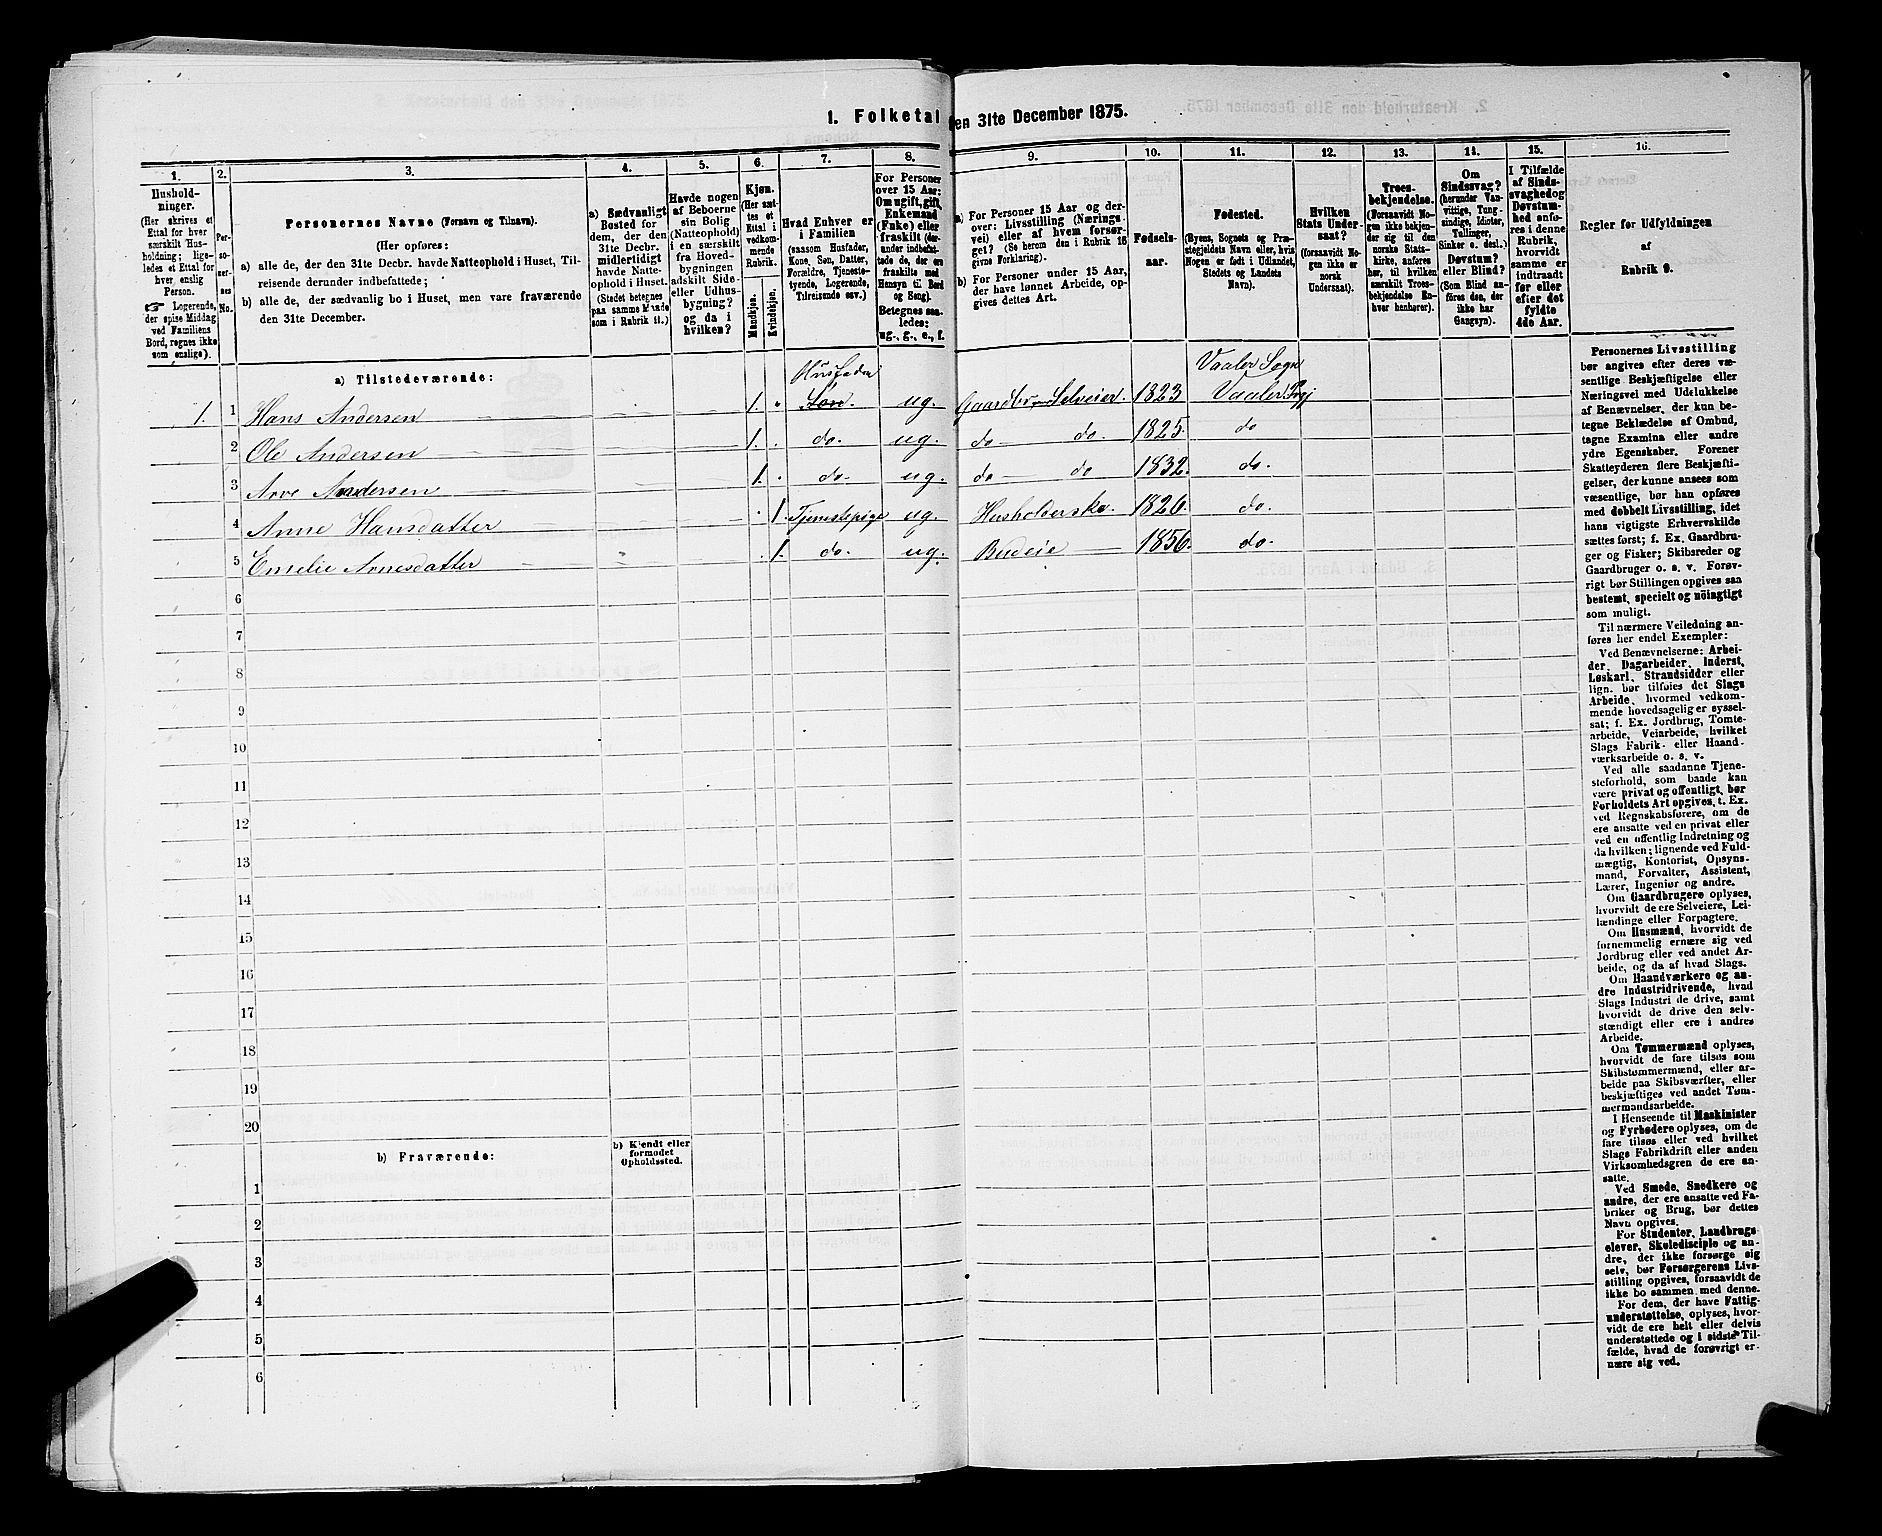 1. Folketal den 31te December 1875.
1.
Hushold-
ninger.
(Her skrives et
Ettal for hver
særskilt Hus-
holdning; lige-
ledes et Ettal for
hver enslig
Person.
☞ Logerende,
der spise Middag
ved Familiens
Bord, regnes ikke
som enslige).
2.
Per-
so-
ner-
nes
No.
3.
Personernes Navne (Fornavn og Tilnavn).
(Her opføres:
a) alle de, der den 31te Decbr. havde Natteophold i Huset, Til-
reisende derunder indbefattede;
b) alle de, der sædvanlig bo i Huset, men vare fraværende
den 31te December.
4.
a) Sædvanligt
Bosted for
dem, der den
31te Decbr.
midlertidigt
havde Natte-
ophold i Huset.
(Stedet betegnes
paa samme Maade
som i Rubrik 11.)
5.
Havde nogen
af Beboerne
sin Bolig
(Natteophold)
i en særskilt
fra Hoved-
bygningen
adskilt Side-
eller Udhus-
bygning?
og da i
hvilken?
6.
Kjøn.
(Her sæt-
tes et
Ettal i
vedkom-
mende
Rubrik.
Mandkjøn.
Kvindekjøn.
7.
Hvad Enhver er
i Familien
(saasom Husfader,
Kone, Søn, Datter,
Forældre, Tjeneste-
tyende, Logerende,
Tilreisende osv.)
8.
For Personer
over 15 Aar:
Om ugift, gift,
Enkemand
(Enke) eller
fraskilt (der-
under indbefat-
tede de, der ere
fraskilte med
Hensyn til Bord
og Seng).
Betegnes saa-
ledes:
ug., g., e., f.
9.
a) For Personer 15 Aar og der-
over: Livsstilling (Nærings-
vei) eller af hvem forsør-
get? (Se herom den i Rubrik 16
givne Forklaring).
b) For Personer under 15 Aar,
der have lønnet Arbeide, op-
gives dettes Art.
10.
Fødsels-
aar.
11.
Fødested.
(Byens, Sognets og Præ-
stegjeldets Navn eller, hvis
Nogen er født i Udlandet,
Stedets og Landets
Navn).
12.
Hvilken
Stats Under-
saat?
(forsaavidt No-
gen ikke er
norsk
Undersaat).
13.
Troes-
bekjendelse.
(Forsaavidt No-
gen ikke bekjen-
der sig til den
norske Stats-
kirke, anføres
her, til hvilken
særskilt Troes-
bekjendelse En-
hver henhører).
14.
Om
Sindssvag?
(herunder Van-
vittige, Tung-
sindige, Idioter,
Tullinger,
Sinker o. desl.)
Døvstum?
eller Blind?
(Som Blind an-
føres den, der
ikke har
Gangsyn).
15.
I Tilfælde
af Sinds-
svaghed og
Døvstum-
hed anfø-
res i denne
Rubrik,
hvorvidt
samme er
indtraadt
før eller
efter det
fyldte
4de Aar.
16.
Regler for Udfyldningen
af
Rubrik 9.
a) Tilstedeværende:
Husfader Vaaler Sogn
1. 1 Hans Andersen 1. Søn. ug. Gaardbr. Selveier. 1823 Vaaler Prgj
2 Ole Andersen 1. do. ug. do do. 1825. do
3 Arve Andersen 1. do. ug. do do 1832. do.
4 Anne Hansdatter 1. Tjenestepige ug. Husholderske. 1826. do.
5 Emelie Arnesdatter 1. do. ug. Budeie 1856. do.
6
7
8
9
10
11
12
13
14
15
16
17
18
19
20
b) Fraværende:
b) Kjendt eller
formodet
Opholdssted.
1
2
3
4
5
6
Personernes Livsstilling
bør angives efter deres væ-
sentlige Beskjæftigelse eller
Næringsvei med Udelukkelse
af Benævnelser, der kun be-
tegne Beklædelse af Ombud,
tagne Examina eller andre
ydre Egenskaber. Forener
Skatteyderen flere Beskjæfti-
gelser, der kunne ansees som
væsentlige, bør han opføres
med dobbelt Livsstilling, idet
hans vigtigste Erhvervskilde
sættes først; f. Ex. Gaardbru-
ger og Fisker; Skibsreder og
Gaardbruger o. s. v. Forøv-
rigt bør Stillingen opgives saa
bestemt, specielt og nøiagtigt
som muligt.
Til nærmere Veiledning an-
føres her endel Exempler:
Ved Benævnelserne: Arbei-
der, Dagarbeider, Inderst,
Løskarl, Strandsidder eller
lign. bør tilføies det Slags
Arbeide, hvormed vedkom-
mende hovedsagelig er syssel-
sat; f. Ex. Jordbrug, Tomte-
arbeide, Veiarbeide, hvilket
Slags Fabrik- eller Haand-
værksarbeide o. s. v.
Ved alle saadanne Tjene-
steforhold, som baade kan
være privat og offentligt, bør
Forholdets Art opgives, t. Ex.
ved Regnskabsførere, om de
ere ansatte ved en privat eller
ved en offentlig Indretning og
da hvilken; lignende ved Fuld-
mægtig, Kontorist, Opsyns-
mand, Forvalter, Assistent,
Lærer, Ingeniør og andre.
Om Gaardbrugere oplyses,
hvorvidt de ere Selveiere, Lei-
lændinge eller Forpagtere.
Om Husmænd, hvorvidt de
fornemmelig ernære sig ved
Jordbrug eller ved andet Ar-
beide, og da af hvad Slags.
Om Haandværkere og an-
dre Industridrivende, hvad
Slags Industri de drive, samt
hvorvidt de drive den selv-
stændigt eller ere i andres
Arbeide.
Om Tømmermænd oplyses,
hvorvidt de fare tilsøs som
Skibstømmermænd, eller ar-
beide paa Skibsværfter, eller
beskjæftiges ved andet Tøm-
mermandsarbeide.
I Henseende til Maskinister
og Fyrbødere oplyses, om de
fare tilsøs eller ved hvilket
Slags Fabrikdrift eller anden
Virksomhedsgren de ere an-
satte.
Ved Smede, Snedkere og
andre, der ere ansatte ved Fa-
briker og Brug, bør dettes
Navn opgives.
For Studenter, Landbrugs-
elever, Skoledisciple og an-
dre, der ikke forsørge sig
selv, bør Forsørgerens Livs-
stilling opgives, forsaavidt de
ikke bo sammen med denne.
For dem, der have Fattig-
understøttelse, oplyses, hvor-
vidt de ere helt eller delvis
understøttede og i sidste Til-
fælde, hvad de forøvrigt er-
nære sig ved.